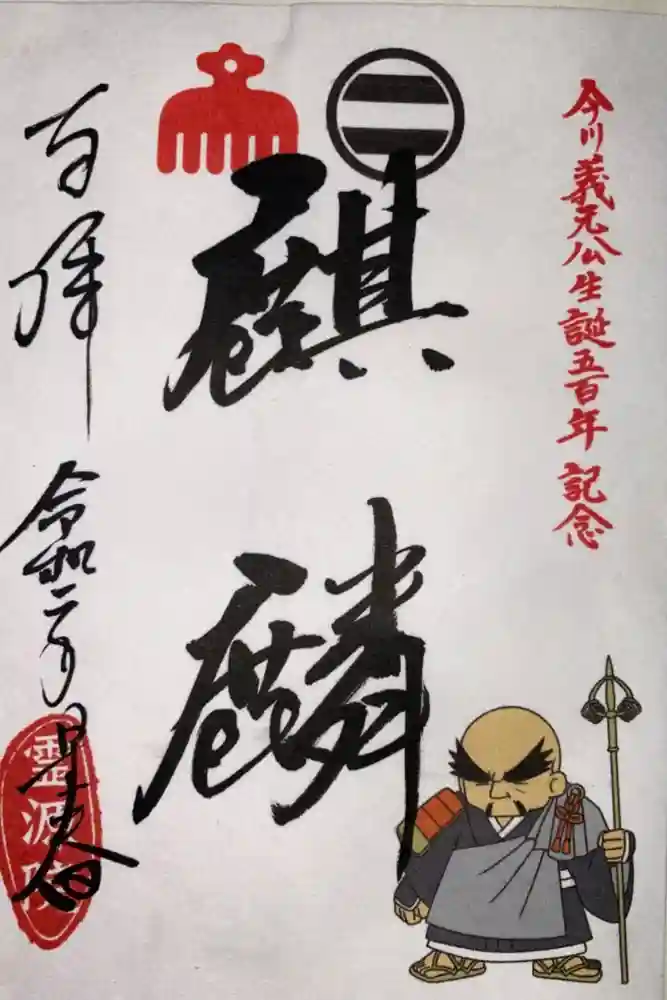 今川義元公生誕五百年 記念
麒麟
拝
令和二
霊源院